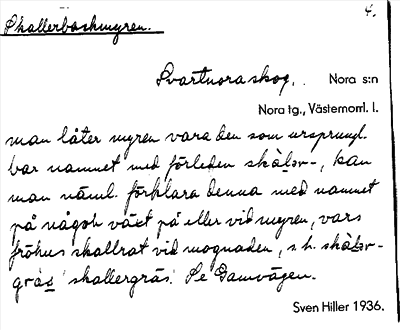 4.
Skallerbackmyren.
Svartnora skog. Nora s:n
Nora tg., Västernorrl. l.
man låter myren vara den som ursprungl.
bar namnet med förleden skàlsv-, kan
man näml. förklara denna med namnet
på någon växt på eller vid myren, vars
fröhus skallrat vid mognaden, s.k. skàlsv-
gräs 'skallergräs'. Se Gamvägen.
Sven Hiller 1936.